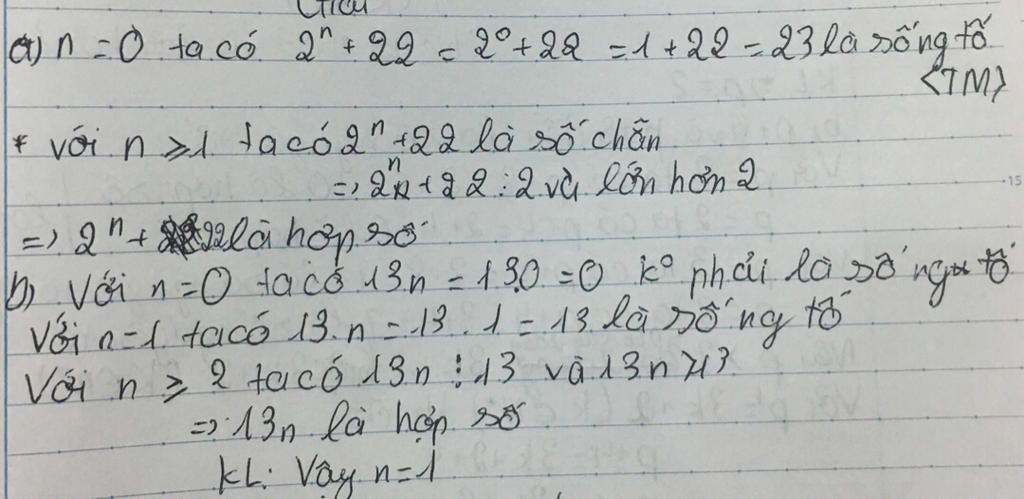 Giải
a) n = 0 ta có 2ⁿ + 22 = 2⁰ + 22 = 1 + 22 = 23 là số ng tố
<TM>
* Với n ≥ 1 ta có 2ⁿ + 22 là số chẵn
=> 2ⁿ + 22 ⋮ 2 và lớn hơn 2
=> 2ⁿ + 22 là hợp số
b) Với n = 0 ta có 13n = 13.0 = 0 k° phải là số ng tố
Với n = 1 ta có 13.n = 13.1 = 13 là số ng tố
Với n ≥ 2 ta có 13n ⋮ 13 và 13n > 13
=> 13n là hợp số
KL: Vậy n = 1